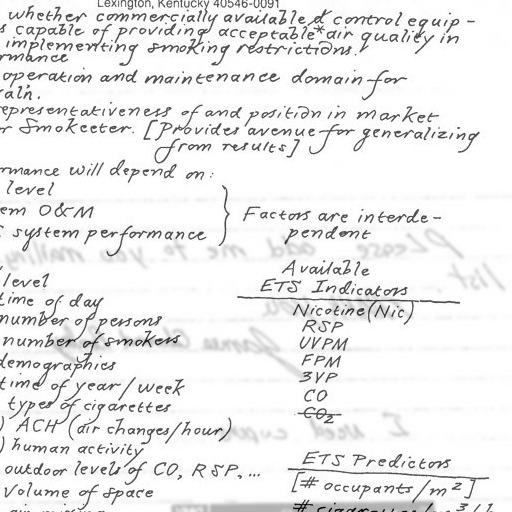 Lexington, Kentucky 40546-0091
whether commercially available control equip-
s capable of providing acceptable* air quality in
implementing smoking restrictions.
rmance
operation and maintenance domain for
representativeness of and position in market
r Smokeeter. [Provides avenue for generalizing
from results]
rmance will depend on:
level
em O&M
system performance
Factors are interde-
pendent
Available
ETS Indicators
level
time of day
number of persons
number of smokers
demographics
time of year/week
types of cigarettes
) ACH (air changes/hour)
) human activity
outdoor levels of CO, RSP, ...
volume of space
Nicotine (Nic)
RSP
UVPM
FPM
3VP
CO
CO2
ETS Predictors
[# occupants/m2]